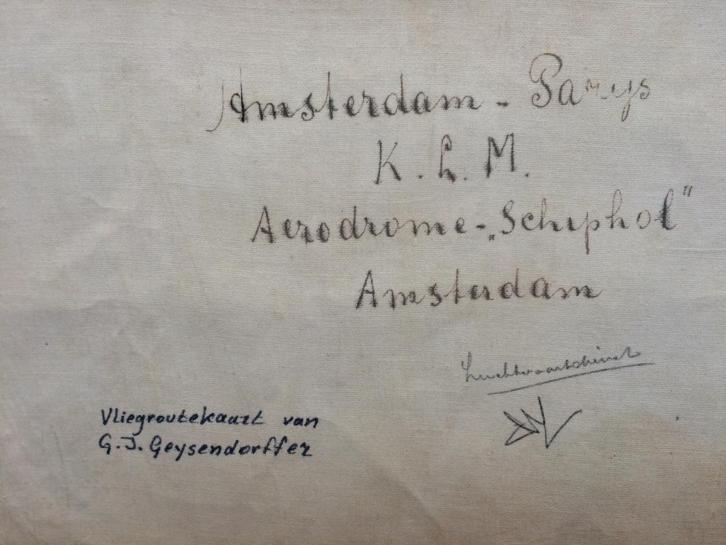 Amsterdam - Parys
K. L. M.
Aerodrome - „Schiphol"
Amsterdam
Luchtvaartdienst
Vliegroutekaart van
G. J. Geysendorffer